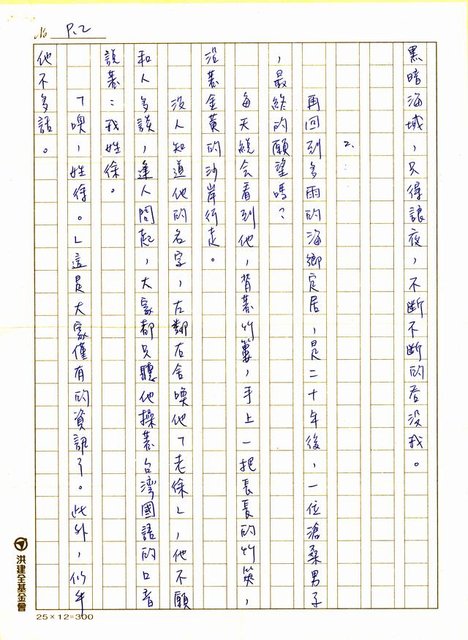 № P.2
黑暗海域，只得讓夜，不斷不斷的吞沒我。
2.
再回到多雨的海鄉定居，是二十年後，一位滄桑男子
，最終的願望嗎？
每天總會看到他，背著竹簍，手上一把長長的竹筴，
沿著金黃的沙岸行走。
沒人知道他的名字，左鄰右舍喚他「老徐」，他不願
和人多談，逢人問起，大家都只聽他操著台灣國語的口音
說著：我姓徐。
「噢，姓徐。」這是大家僅有的資訊了。此外，
他不多話。
洪建全基金會
25×12=300